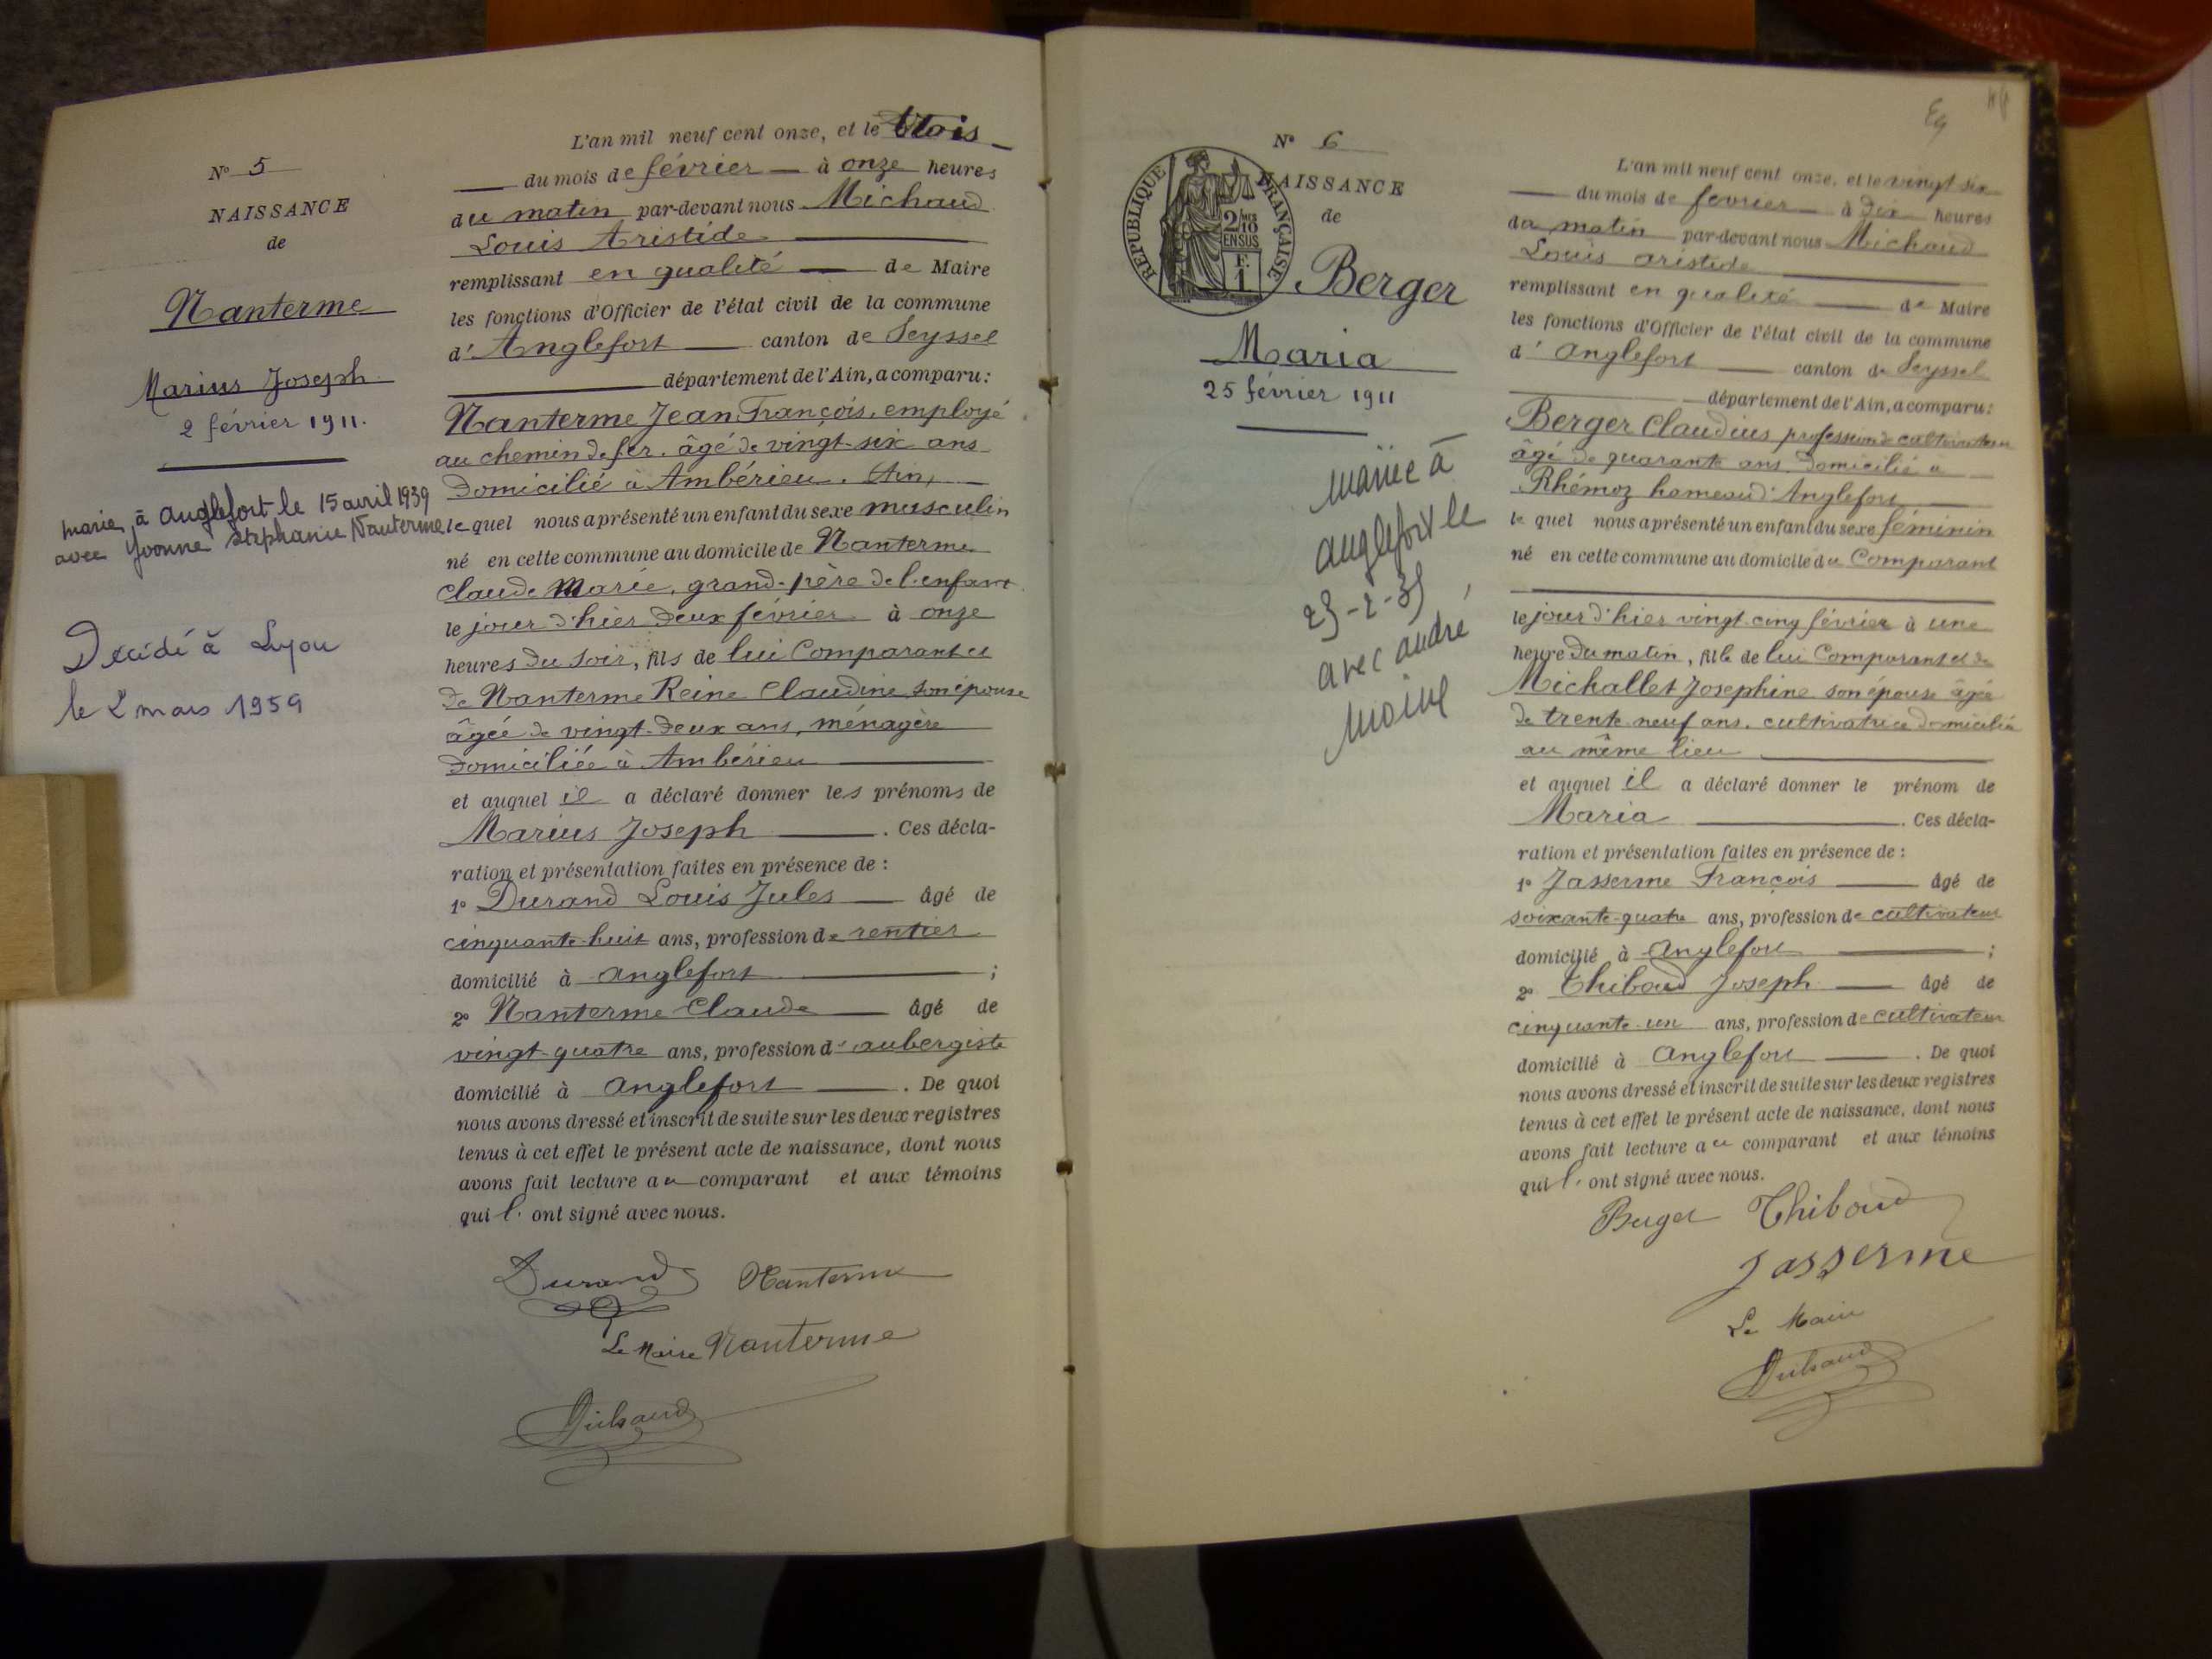 N° 5
NAISSANCE
de
Nanterme
Marius Joseph
2 février 1911.
marié à Anglefort le 15 avril 1939
avec Yvonne Stéphanie Nanterme
Décédé à Lyon
le 2 mars 1959
L'an mil neuf cent onze, et le trois
du mois de février à onze heures
du matin par-devant nous Michaud
Louis Aristide
remplissant en qualité de Maire
les fonctions d'Officier de l'état civil de la commune
d'Anglefort canton de Seyssel
département de l'Ain, a comparu:
Nanterme Jean François, employé
au chemin de fer, âgé de vingt-six ans
domicilié à Ambérieu, Ain,
lequel nous a présenté un enfant du sexe masculin
né en cette commune au domicile de Nanterme
Claude Marie, grand-père de l'enfant
le jour d'hier deux février à onze
heures du soir, fils de lui Comparant et
de Nanterme Reine Claudine son épouse
âgée de vingt-deux ans, ménagère
domiciliée à Ambérieu
et auquel il a déclaré donner les prénoms de
Marius Joseph. Ces décla-
ration et présentation faites en présence de :
1° Durand Louis Jules âgé de
cinquante-huit ans, profession de rentier
domicilié à Anglefort ;
2° Nanterme Claude âgé de
vingt-quatre ans, profession d'aubergiste
domicilié à Anglefort. De quoi
nous avons dressé et inscrit de suite sur les deux registres
tenus à cet effet le présent acte de naissance, dont nous
avons fait lecture au comparant et aux témoins
qui l'ont signé avec nous.
Durand Nanterme
Le Maire Nanterme
Michaud
N° 6
NAISSANCE
de
RÉPUBLIQUE FRANÇAISE
2/10
EN SUS
F.
1
Berger
Maria
25 février 1911
mariée à
Anglefort le
avec André
Moine
L'an mil neuf cent onze, et le vingt six
du mois de février à dix heures
du matin par-devant nous Michaud
Louis Aristide
remplissant en qualité de Maire
les fonctions d'Officier de l'état civil de la commune
d'Anglefort canton de Seyssel
département de l'Ain, a comparu:
Berger Claudius profession de cultivateur
âgé de quarante ans domicilié à
Rhémoz hameau d'Anglefort
lequel nous a présenté un enfant du sexe féminin
né en cette commune au domicile du Comparant
le jour d'hier vingt-cinq février à une
heure du matin, fille de lui Comparant et de
Michallet Josephine son épouse âgée
de trente-neuf ans, cultivatrice domiciliée
au même lieu
et auquel il a déclaré donner le prénom de
Maria. Ces décla-
ration et présentation faites en présence de :
1° Jasserme François âgé de
soixante-quatre ans, profession de cultivateur
domicilié à Anglefort ;
2° Thiboud Joseph âgé de
cinquante-un ans, profession de cultivateur
domicilié à Anglefort. De quoi
nous avons dressé et inscrit de suite sur les deux registres
tenus à cet effet le présent acte de naissance, dont nous
avons fait lecture au comparant et aux témoins
qui l'ont signé avec nous.
Berger Thiboud
Jasserme
Le Maire
Michaud